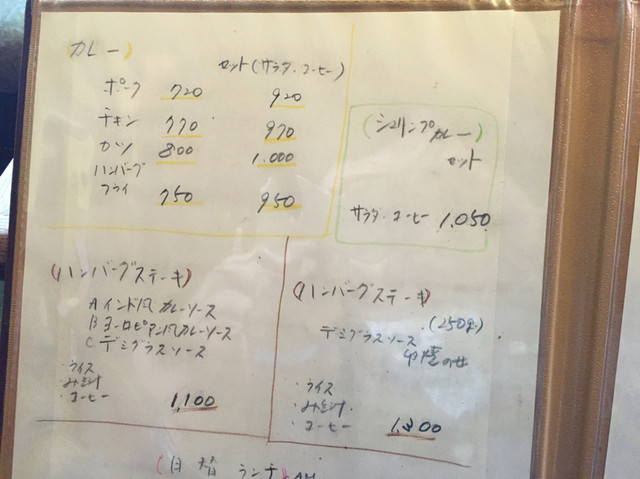 カレー
セット(サラダ・コーヒー)
ポーク 720 920
チキン 770 970
カツ 800 1.000
ハンバーグ
フライ 750 950
(シュリンプカレー)
セット
サラダ・コーヒー 1,050
(ハンバーグステーキ)
Aインド風カレーソース
Bヨーロピアン風カレーソース
Cデミグラスソース
・ライス
・みそ汁
・コーヒー 1,100
(ハンバーグステーキ)
(250g)
デミグラスソース
・ライス
・みそ汁
・コーヒー 1,300
(日替ランチ)